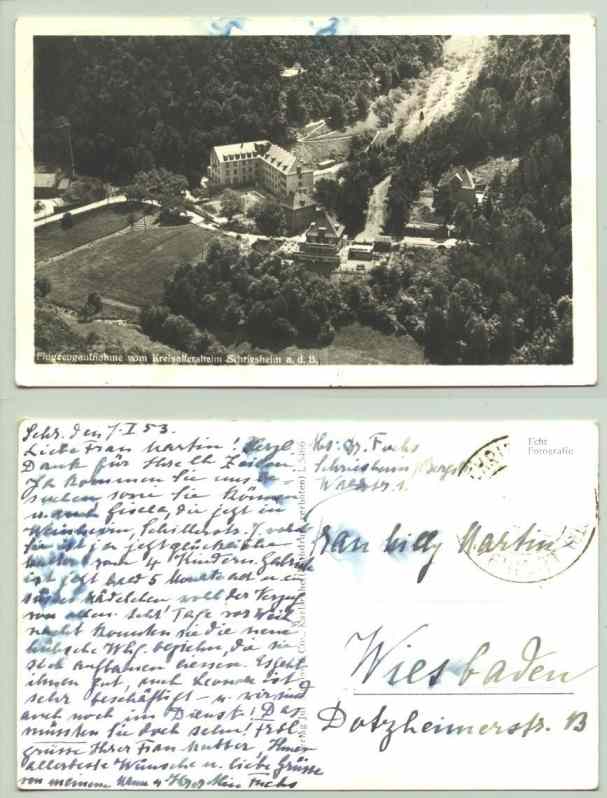 Flugzeugaufnahme vom Kreisaltersheim Schriesheim a. d. B.
Schr. den 7.I.53.
Liebe Frau Martin! Herzl.
Dank für Ihre lb. Zeilen.
Ja kommen Sie uns be-
suchen wenn Sie können
u. auch Gisela, die jetzt in
Weinheim, Schillerstr. 7
Sie ist ja jetzt glückliche
Mutter von 4 Kindern. Gabriele
ist jetzt bald 5 Monate alt u. ein
süsses Mädelchen voll der Verzug
von allen. Acht Tage vor Weih
nacht konnten sie die neue
hübsche Whg. beziehen, die sie
sich aufbauen liessen. Es geht
ihnen gut, auch ist
sehr beschäftigt - u. wir sind
auch noch im Dienst! Das
müssten Sie doch sehn! Frdl.
grüsse Ihrer Frau Mutter, Ihnen
allerbeste Wünsche u. liebe Grüsse
von meinem Mann u. Ihrer Fuchs
Fuchs
Schriesheim/Bergstr.
Echte
Fotografie
Frau Willy Martin
Wiesbaden
Dotzheimerstr. 13